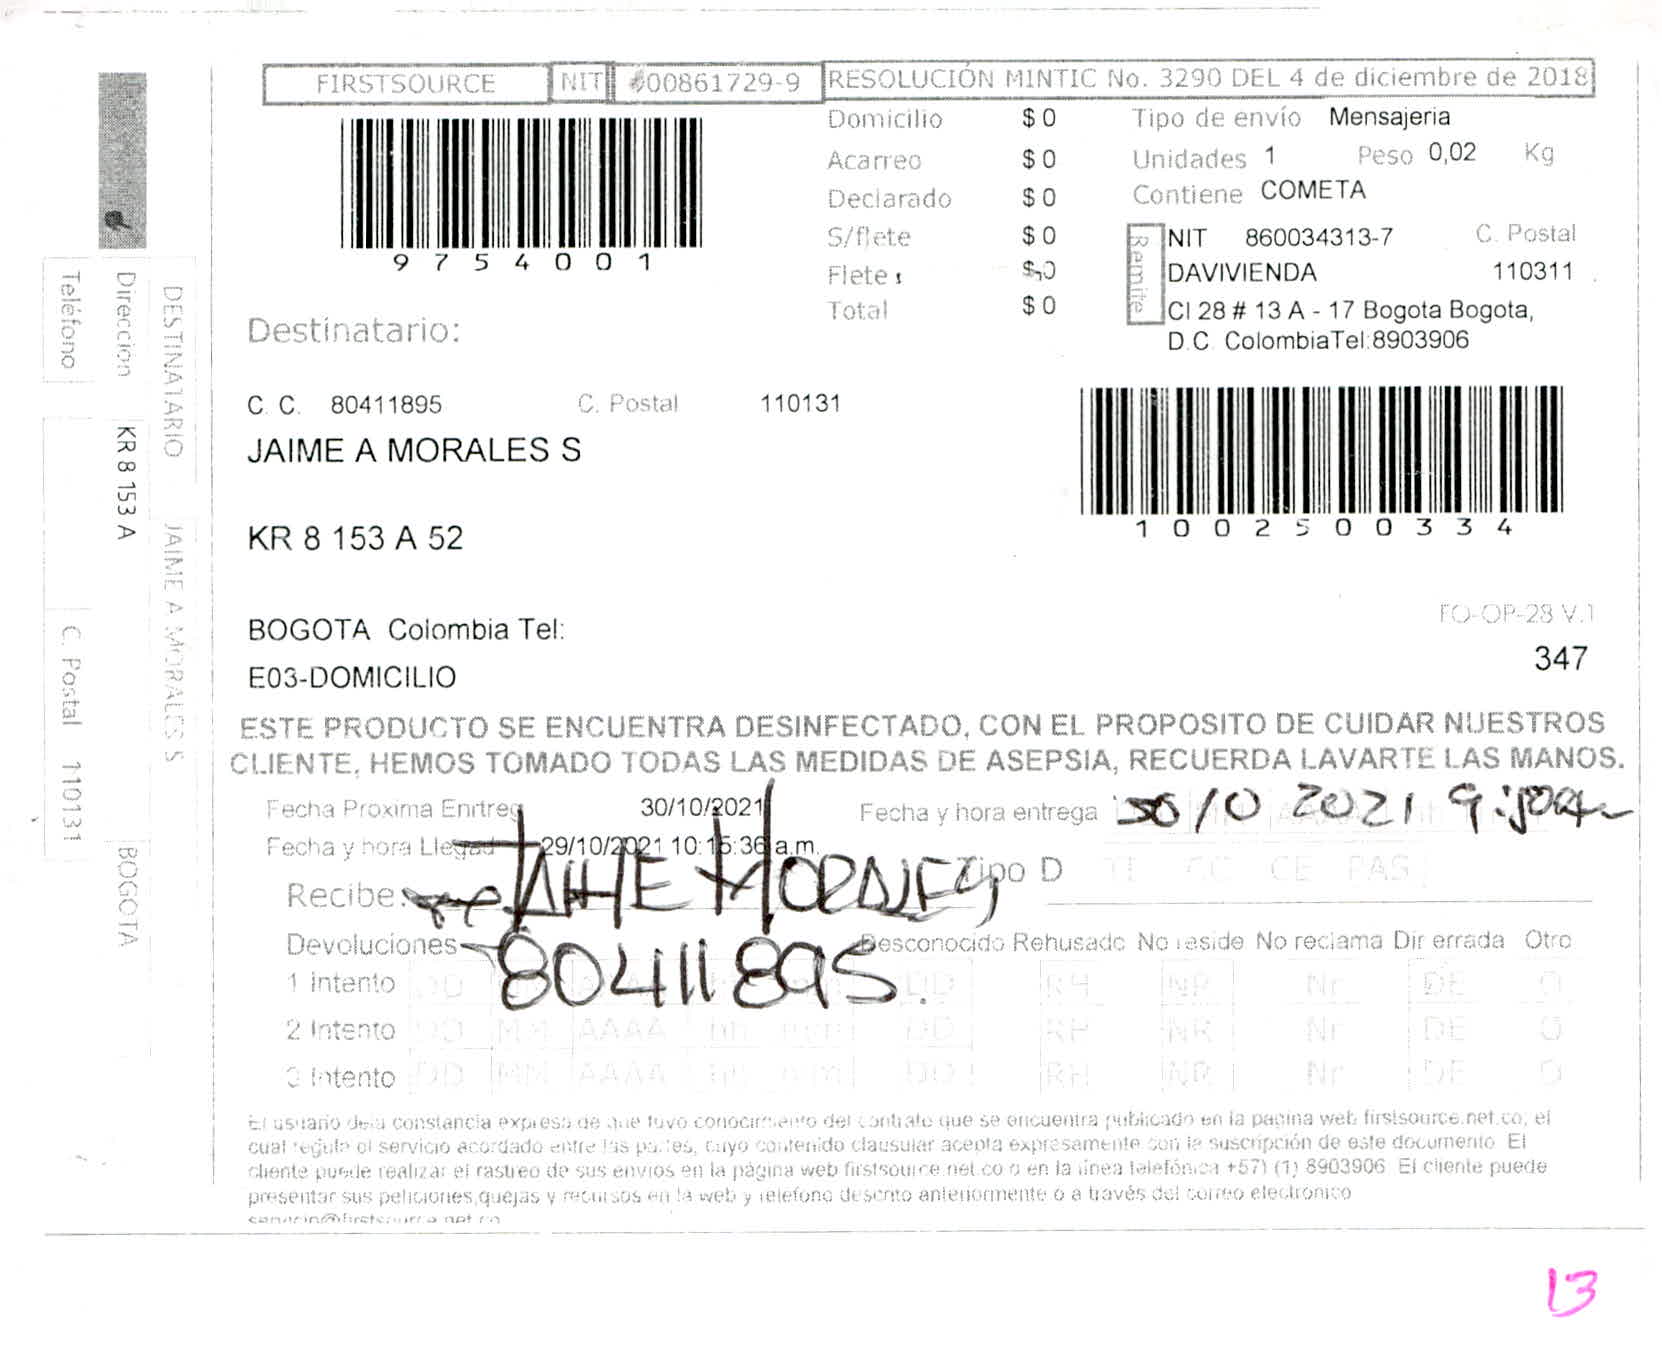 FIRSTSOURCE NIT 00861729-9 RESOLUCIÓN MINTIC No. 3290 DEL 4 de diciembre de 2018
9754001
Domicilio $ 0
Acarreo $ 0
Declarado $ 0
S/flete $ 0
Flete $ 0
Total $ 0
Tipo de envío Mensajeria
Unidades 1 Peso 0,02 Kg
Contiene COMETA
Remite
NIT 860034313-7 C. Postal
DAVIVIENDA 110311
Cl 28 # 13 A - 17 Bogota Bogota,
D.C. ColombiaTel:8903906
Destinatario:
C. C. 80411895 C. Postal 110131
JAIME A MORALES S
1002500334
KR 8 153 A 52
FO-OP-28 V.1
BOGOTA Colombia Tel:
347
E03-DOMICILIO
ESTE PRODUCTO SE ENCUENTRA DESINFECTADO, CON EL PROPOSITO DE CUIDAR NUESTROS
CLIENTE, HEMOS TOMADO TODAS LAS MEDIDAS DE ASEPSIA, RECUERDA LAVARTE LAS MANOS.
Fecha Proxima Entreg 30/10/2021 Fecha y hora entrega 30/10 2021
Fecha y hora Llegad 29/10/2021 10:15:36 a.m.
Recibe: JAIME MORALES Tipo D TI CC CE PAS
80411895.
Devoluciones Desconocido Rehusado No reside No reclama Dir errada Otro
1 Intento DD RH NR Nr DE O
2 Intento DD MM AAAA hh mm DD RH NR Nr DE O
3 Intento DD MM AAAA hh mm DD RH NR Nr DE O
El usuario deja constancia expresa de que tuvo conocimiento del contrato que se encuentra publicado en la pagina web firstsource.net.co, el
cual regula el servicio acordado entre las partes, cuyo contenido clausular acepta expresamente con la suscripción de este documento El
cliente puede realizar el rastreo de sus envios en la página web firstsource.net.co o en la línea telefónica +57) (1) 8903906 El cliente puede
presentar sus peticiones,quejas y recursos en la web y telefono descrito anteriormente o a través del correo electronico
servicio@firstsource.net.co
DESTINATARIO JAIME A MORALES S
Direccion KR 8 153 A BOGOTA
Teléfono C. Postal 110131
13